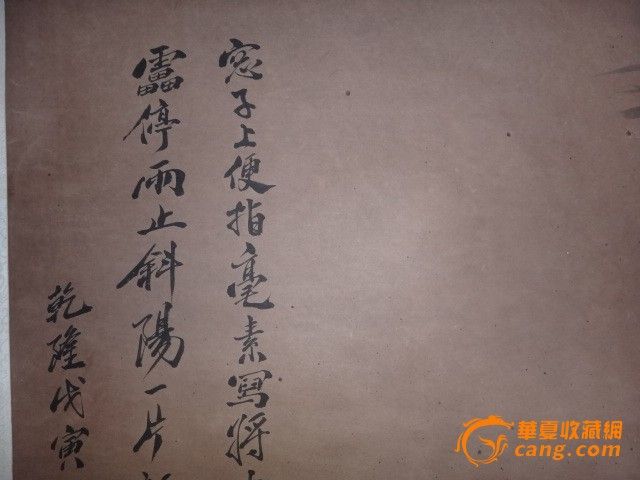 窓子上便指毫素寫將
靁停雨止斜陽一片
乾隆戊寅
華夏收藏網
cang.com